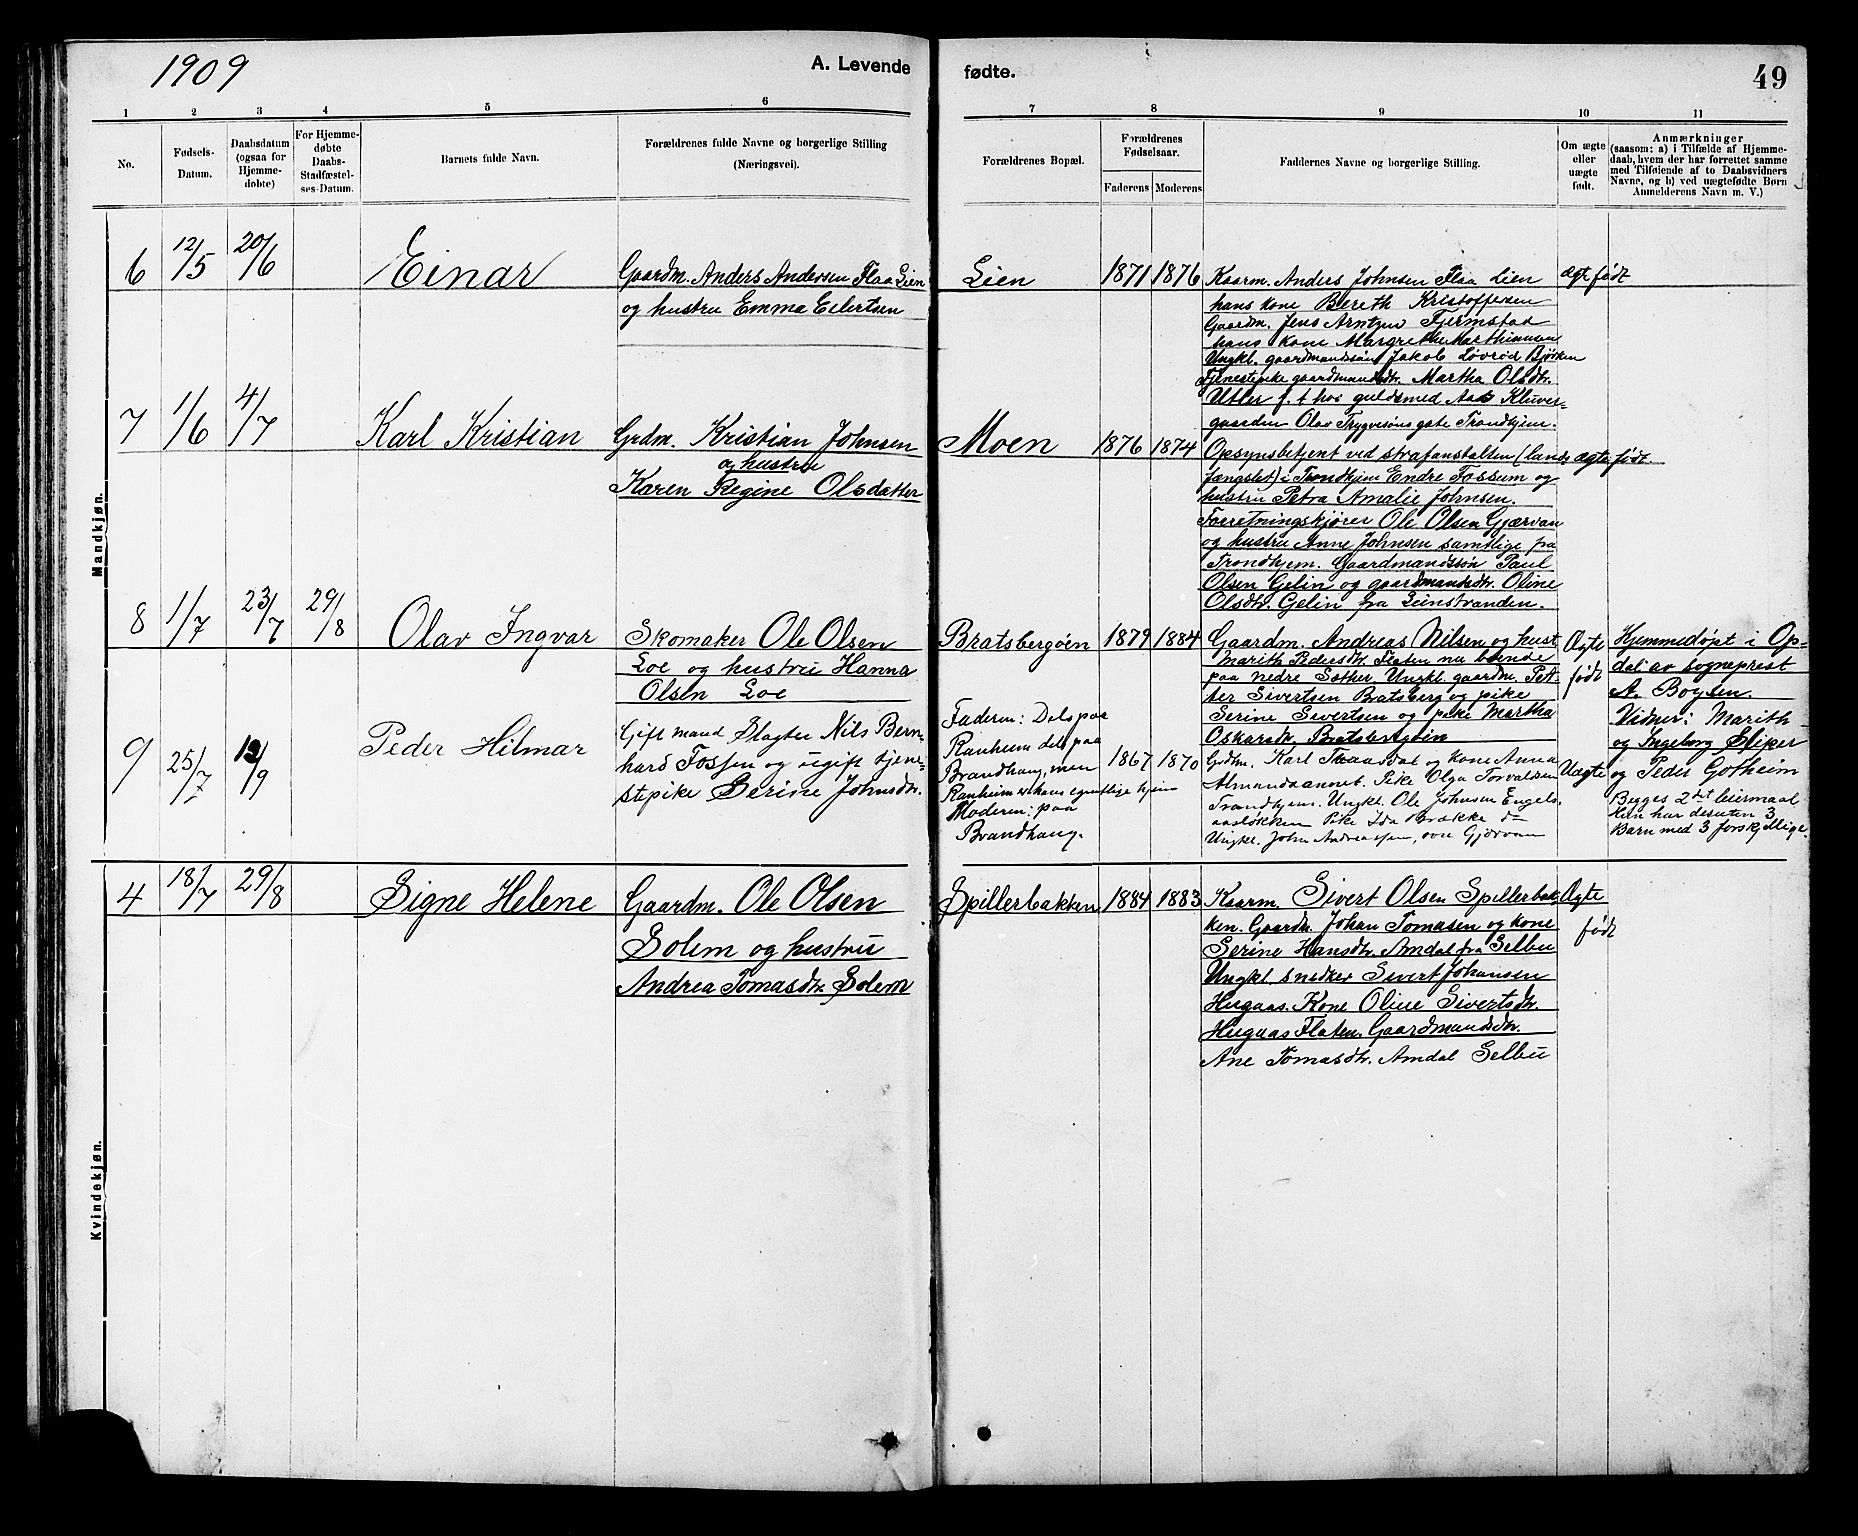 1909
A. Levende fødte.
49
1 2 3 4 5 6 7 8 9 10 11
No.
Fødsels-
Datum.
Daabsdatum
(ogsaa for
Hjemme-
døbte)
For Hjemme-
døbte
Daabs-
Stadfæstel-
ses-Datum.
Barnets fulde Navn.
Forældrenes fulde Navne og borgerlige Stilling
(Næringsvei).
Forældrenes Bopæl.
Forældrenes
Fødselsaar.
Faderens Moderens
Faddernes Navne og borgerlige Stilling.
Om ægte
eller
uægte
født.
Anmærkninger
(saasom: a) i Tilfælde af Hjemme-
daab, hvem der har forrettet samme
med Tilføiende af to Daabsvidners
Navne, og b) ved uægtefødte Børn
Anmelderens Navn m. V.)
Mandkjøn.
6 12/5 20/6 Einar
Gaardm. Anders Andersen Flaa Lien
og hustru Emma Eilertsen
Lien 1871 1876
Kaarm. Anders Johnsen Flaa Lien
hans kone Bereth Kristoffersen
Gaardm. Jens Arntzen Tjermstad
hans kone Margrethe Marthiansen
Ungkl. gaardmandssøn Jakob Løvrød Bjørken
Tjenestepike gaardmandsdtr. Martha Olsdtr.
Utler f. t hos guldsmed Aas Kluver-
gaarden Olav Trygvesøns gate Trondhjem.
ægte født
7 1/6 4/7 Karl Kristian
Grdm. Kristian Johnsen
og hustru
Karen Regine Olsdatter
Moen 1876 1874
Opsynsbetjent ved strafanstalten (lands
fængslet) i Trondhjem Endre Fossum og
hustru Petra Amalie Johnsen.
Forretningskjører Ole Olsen Gjærvan
og hustru Anne Johnsen samtlige fra
Trondhjem. Gaardmandssøn Paul
Olsen Gelin og gaardmandsdtr. Oline
Olsdtr. Gelin fra Leinstranden.
ægte født.
8 1/7 23/7 29/8 Olav Ingvar
Skomaker Ole Olsen
Loe og hustru Hanna
Olsen Loe
Bratsbergøien 1879 1884
Gaardm. Andreas Nilsen og hust
Marith Pedersdtr. Flaten nu boende
paa nedre Sæther. Ungkl. gaardm. Pet-
ter Sivertsen Bratsberg og pike
Serine Sivertsen og pike Martha
Oskarsdtr. Bratsbergøien
Ægte
født
Hjemmedøpt i Op-
dal av sogneprest
A. Boysen.
Vidner: Marith
og Ingeborg Sliper
og Peder Gotheim
9 25/7 12/9 Peder Hilmar
Gift mand Slagter Nils Bern-
hard Fossen og ugift tjene-
stepike Serine Johnsdtr.
Faderen: Dels paa
Ranheim dels paa
Brandhaug, men
Ranheim er hans egentlige hjem
Moderen: paa
Brandhaug.
1867 1870
Grdm. Karl Traaddal og kone Anna
Almundaannet. Pike Olga Torvaldsen
Trondhjem. Ungkl. Ole Johnsen Engels-
aasløkken Pike Ida Brække do
Ungkl. John Andreassen, øvre Gjervan
Uægte
Begges 2det leiermaal
Hun har desuten 3
Barn med 3 forskjellige.
Kvindekjøn.
4 18/7 29/8 Signe Helene
Gaardm. Ole Olsen
Solem og hustru
Andrea Tomasdtr. Solem
Spillerbakken 1884 1883
Kaarm. Sivert Olsen Spillerbak-
ken. Gaardm. Johan Tomasen og kone
Serine Hansdtr. Amdal fra Selbu
Ungkl. snedker Sivert Johansen
Hugaas. Kone Oline Sivertsdtr.
Hugaas Flaten. Gaardmandsdtr.
Ane Tomasdtr. Amdal Selbu
Ægte
født